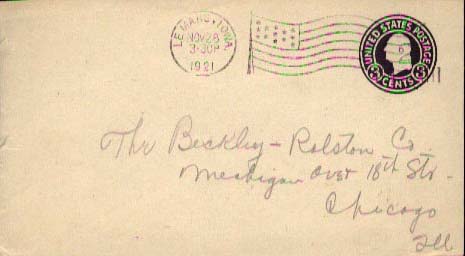 LE MARS, IOWA.
NOV 28
3-30P
1921
UNITED STATES POSTAGE
CENTS
The Beckley-Ralston Co.
Michigan Over 18th Str.
Chicago
Ill